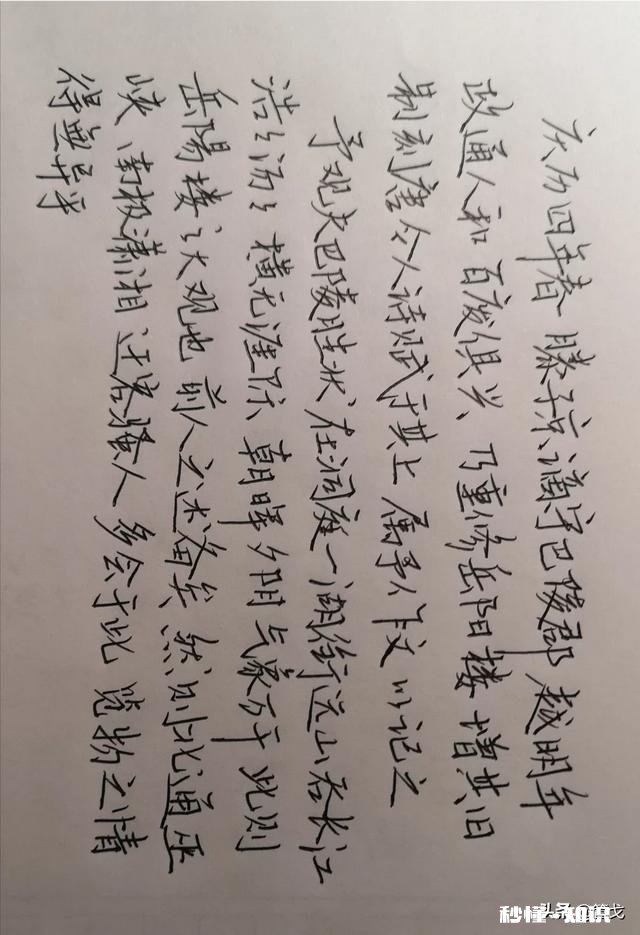 庆历四年春 滕子京谪守巴陵郡 越明年
政通人和 百废俱兴、乃重修岳阳楼 增其旧
制刻唐今人诗赋于其上 属予作文以记之
予观夫巴陵胜状 在洞庭一湖 衔远山 吞长江
浩〻汤〻 横无涯际 朝晖夕阴 气象万千 此则
岳陽楼之大观也 前人之述备矣 然则北通巫
峡、南极潇湘 迁客骚人 多会于此 览物之情
得無异乎
头条
秒懂-知识